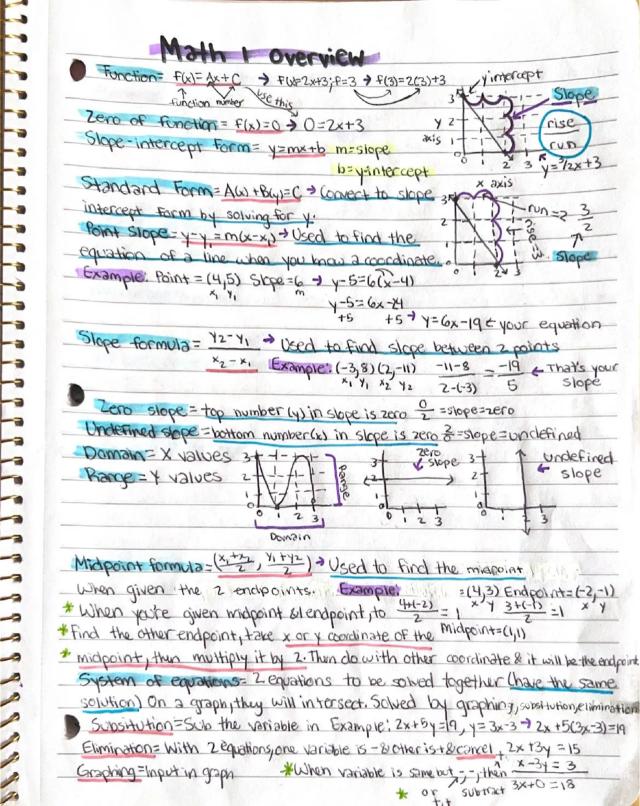 Math 1 Overview
Function= f(x)= Ax+C → f(x)=2x+3; f=3 → f(3)=2(3)+3
function number use this
y intercept
Slope
rise
run
y axis
x axis
Zero of function= f(x)=0 → 0=2x+3
Slope-intercept form= y=mx+b m=slope
b=y-intercept
Standard Form= A(x)+B(y)=C → Convert to slope
intercept form by solving for y.
run=2
3
2
Slope
Point Slope= y-y₁=m(x-x₁) → Used to find the
equation of a line when you know a coordinate.
Example: Point = (4,5) Slope=6 → y-5=6(x-4)
x₁ y₁ m
y-5=6x-24
+5 +5 → y=6x-19 ← your equation
Slope formula= y2-y1 / x2-x1 → Used to find slope between 2 points
Example: (-3,8)(2,-11) -11-8 / 2-(-3) = -19 / 5 ← That's your slope
x₁ y₁ x₂ y₂
Zero slope= top number (y) in slope is zero 0/2 =slope=zero
Undefined slope= bottom number(x) in slope is zero =slope=undefined
Domain= X values
Range= Y values
Range
Domain
zero slope
undefined slope
Midpoint formula= (x₁+x₂/2, y₁+y2/2) → Used to find the midpoint
When given the 2 endpoints. Example: =(4,3) Endpoint=(-2,-1)
x y x y
* When you're given midpoint & 1 endpoint, to 4+(-2)/2 = 1 3+(-1)/2 = 1
* Find the other endpoint, take x or y coordinate of the Midpoint=(1,1)
* midpoint, then multiply it by 2. Then do with other coordinate & it will be the endpoint
System of equations= 2 equations to be solved together (have the same
solution) On a graph, they will intersect. Solved by graphing, substitution, elimination
Subsitution= Sub the variable in Example: 2x+5y=19, y=3x-3 → 2x+5(3x-3)=19
Elimination= With 2 equations, one variable is - & other is + & cancel, 2x+3y=15
x-3y=3
3x+0=18
Graphing= Input in graph * When variable is same but -,-, then subtract
* or +,+